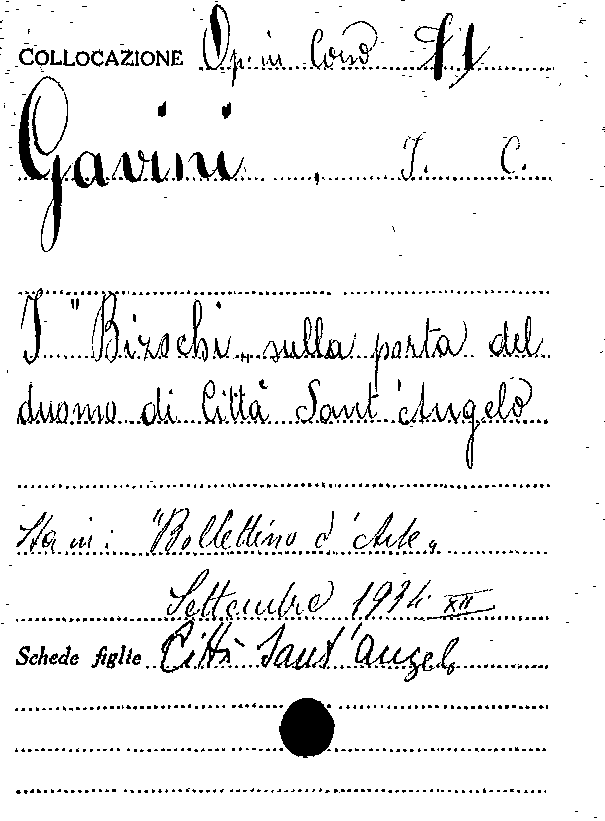 COLLOCAZIONE Op. in Corso 71
Gavini, I. C.
I "Bizochi" sulla porta del
duomo di Città Sant'Angelo
Sta in: "Bollettino d'Arte"
Settembre 1934 XII
Schede figlie Città Sant'Angelo